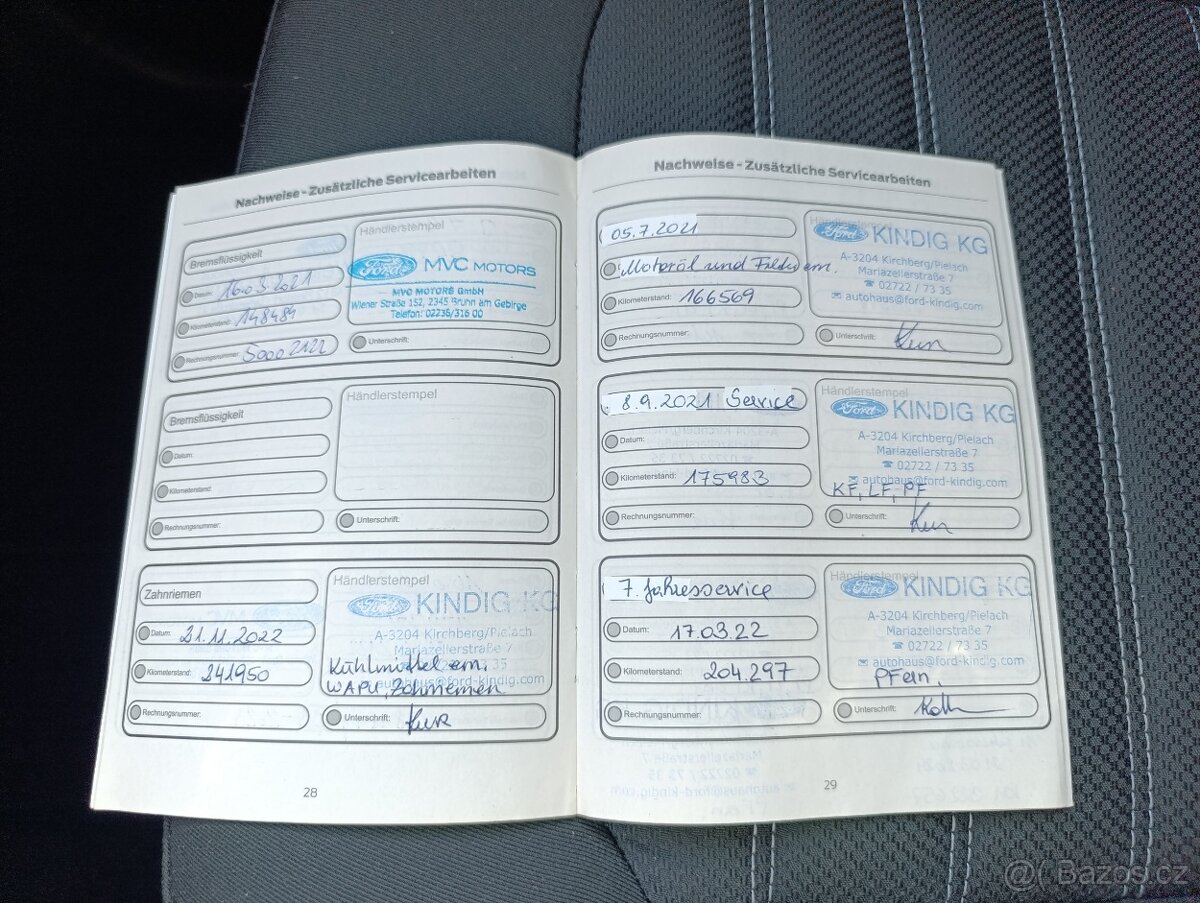 Nachweise - Zusätzliche Servicearbeiten
Bremsflüssigkeit
Datum: 16.03.2021
Kilometerstand: 148484
Rechnungsnummer: 50002122
Händlerstempel
Ford MVC MOTORS
MVC MOTORS GmbH
Wiener Straße 152, 2345 Brunn am Gebirge
Telefon: 02236/316 00
Unterschrift:
Bremsflüssigkeit
Datum:
Kilometerstand:
Rechnungsnummer:
Händlerstempel
Unterschrift:
Zahnriemen
Datum: 21.11.2022
Kilometerstand: 241950
Rechnungsnummer:
Händlerstempel
Ford KINDIG KG
A-3204 Kirchberg/Pielach
Mariazellerstraße 7
Kühlmittel ern. 35
autohaus@ford-kindig.com
WAPU, Zahnriemen
Unterschrift:
28
Nachweise - Zusätzliche Servicearbeiten
05.7.2021
Motoröl und Filter ern.
Kilometerstand: 166569
Rechnungsnummer:
Händlerstempel
Ford KINDIG KG
A-3204 Kirchberg/Pielach
Mariazellerstraße 7
☎ 02722 / 73 35
✉ autohaus@ford-kindig.com
Unterschrift:
8.9.2021 Service
Datum:
Kilometerstand: 175983
Rechnungsnummer:
Händlerstempel
Ford KINDIG KG
A-3204 Kirchberg/Pielach
Mariazellerstraße 7
☎ 02722 / 73 35
✉ autohaus@ford-kindig.com
KF, LF, PF
Unterschrift:
7. Jahresservice
Datum: 17.03.22
Kilometerstand: 204.297
Rechnungsnummer:
Händlerstempel
Ford KINDIG KG
A-3204 Kirchberg/Pielach
Mariazellerstraße 7
☎ 02722 / 73 35
✉ autohaus@ford-kindig.com
PF ern.
Unterschrift:
29
@( Bazos.cz